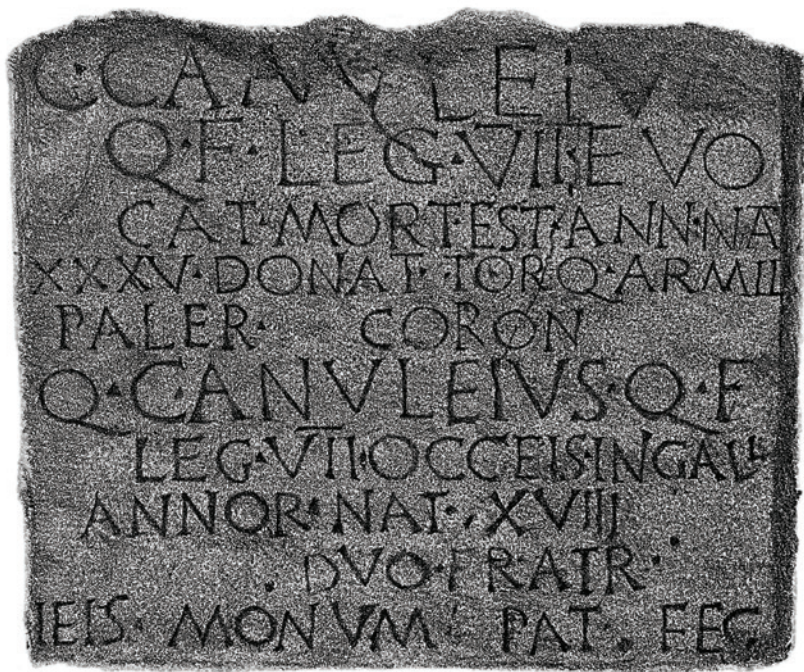 C·CANVLEIV
Q·F·LEG·VII·EVO
CAT·MORT·EST·ANN·NAT
XXXV·DONAT·TORQ·ARMIL
PALER· CORON
Q·CANVLEIVS·Q·F
LEG·VII·OCCEIS·IN·GALL
ANNOR·NAT·XVIII
DVO·FRATR·
IEIS·MONVM· PAT·FEC